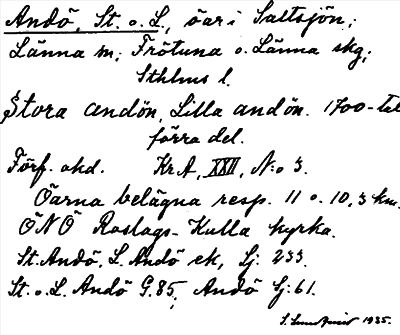 Andö, St. o. L., öar i Saltsjön;
Länna sn; Frötuna o. Länna skg;
Sthlms l.
Stora andön, Lilla andön. 1700-tal
förra del.
Förf. okd. Kr A, XXII, N:o 3.
Öarna belägna resp. 11 o. 10,3 km.
ÖNÖ Roslags-Kulla kyrka.
St. Andö, L. Andö ek, Sj: 233.
St. o. L. Andö G. 85, Andö Sj: 61.
1935.